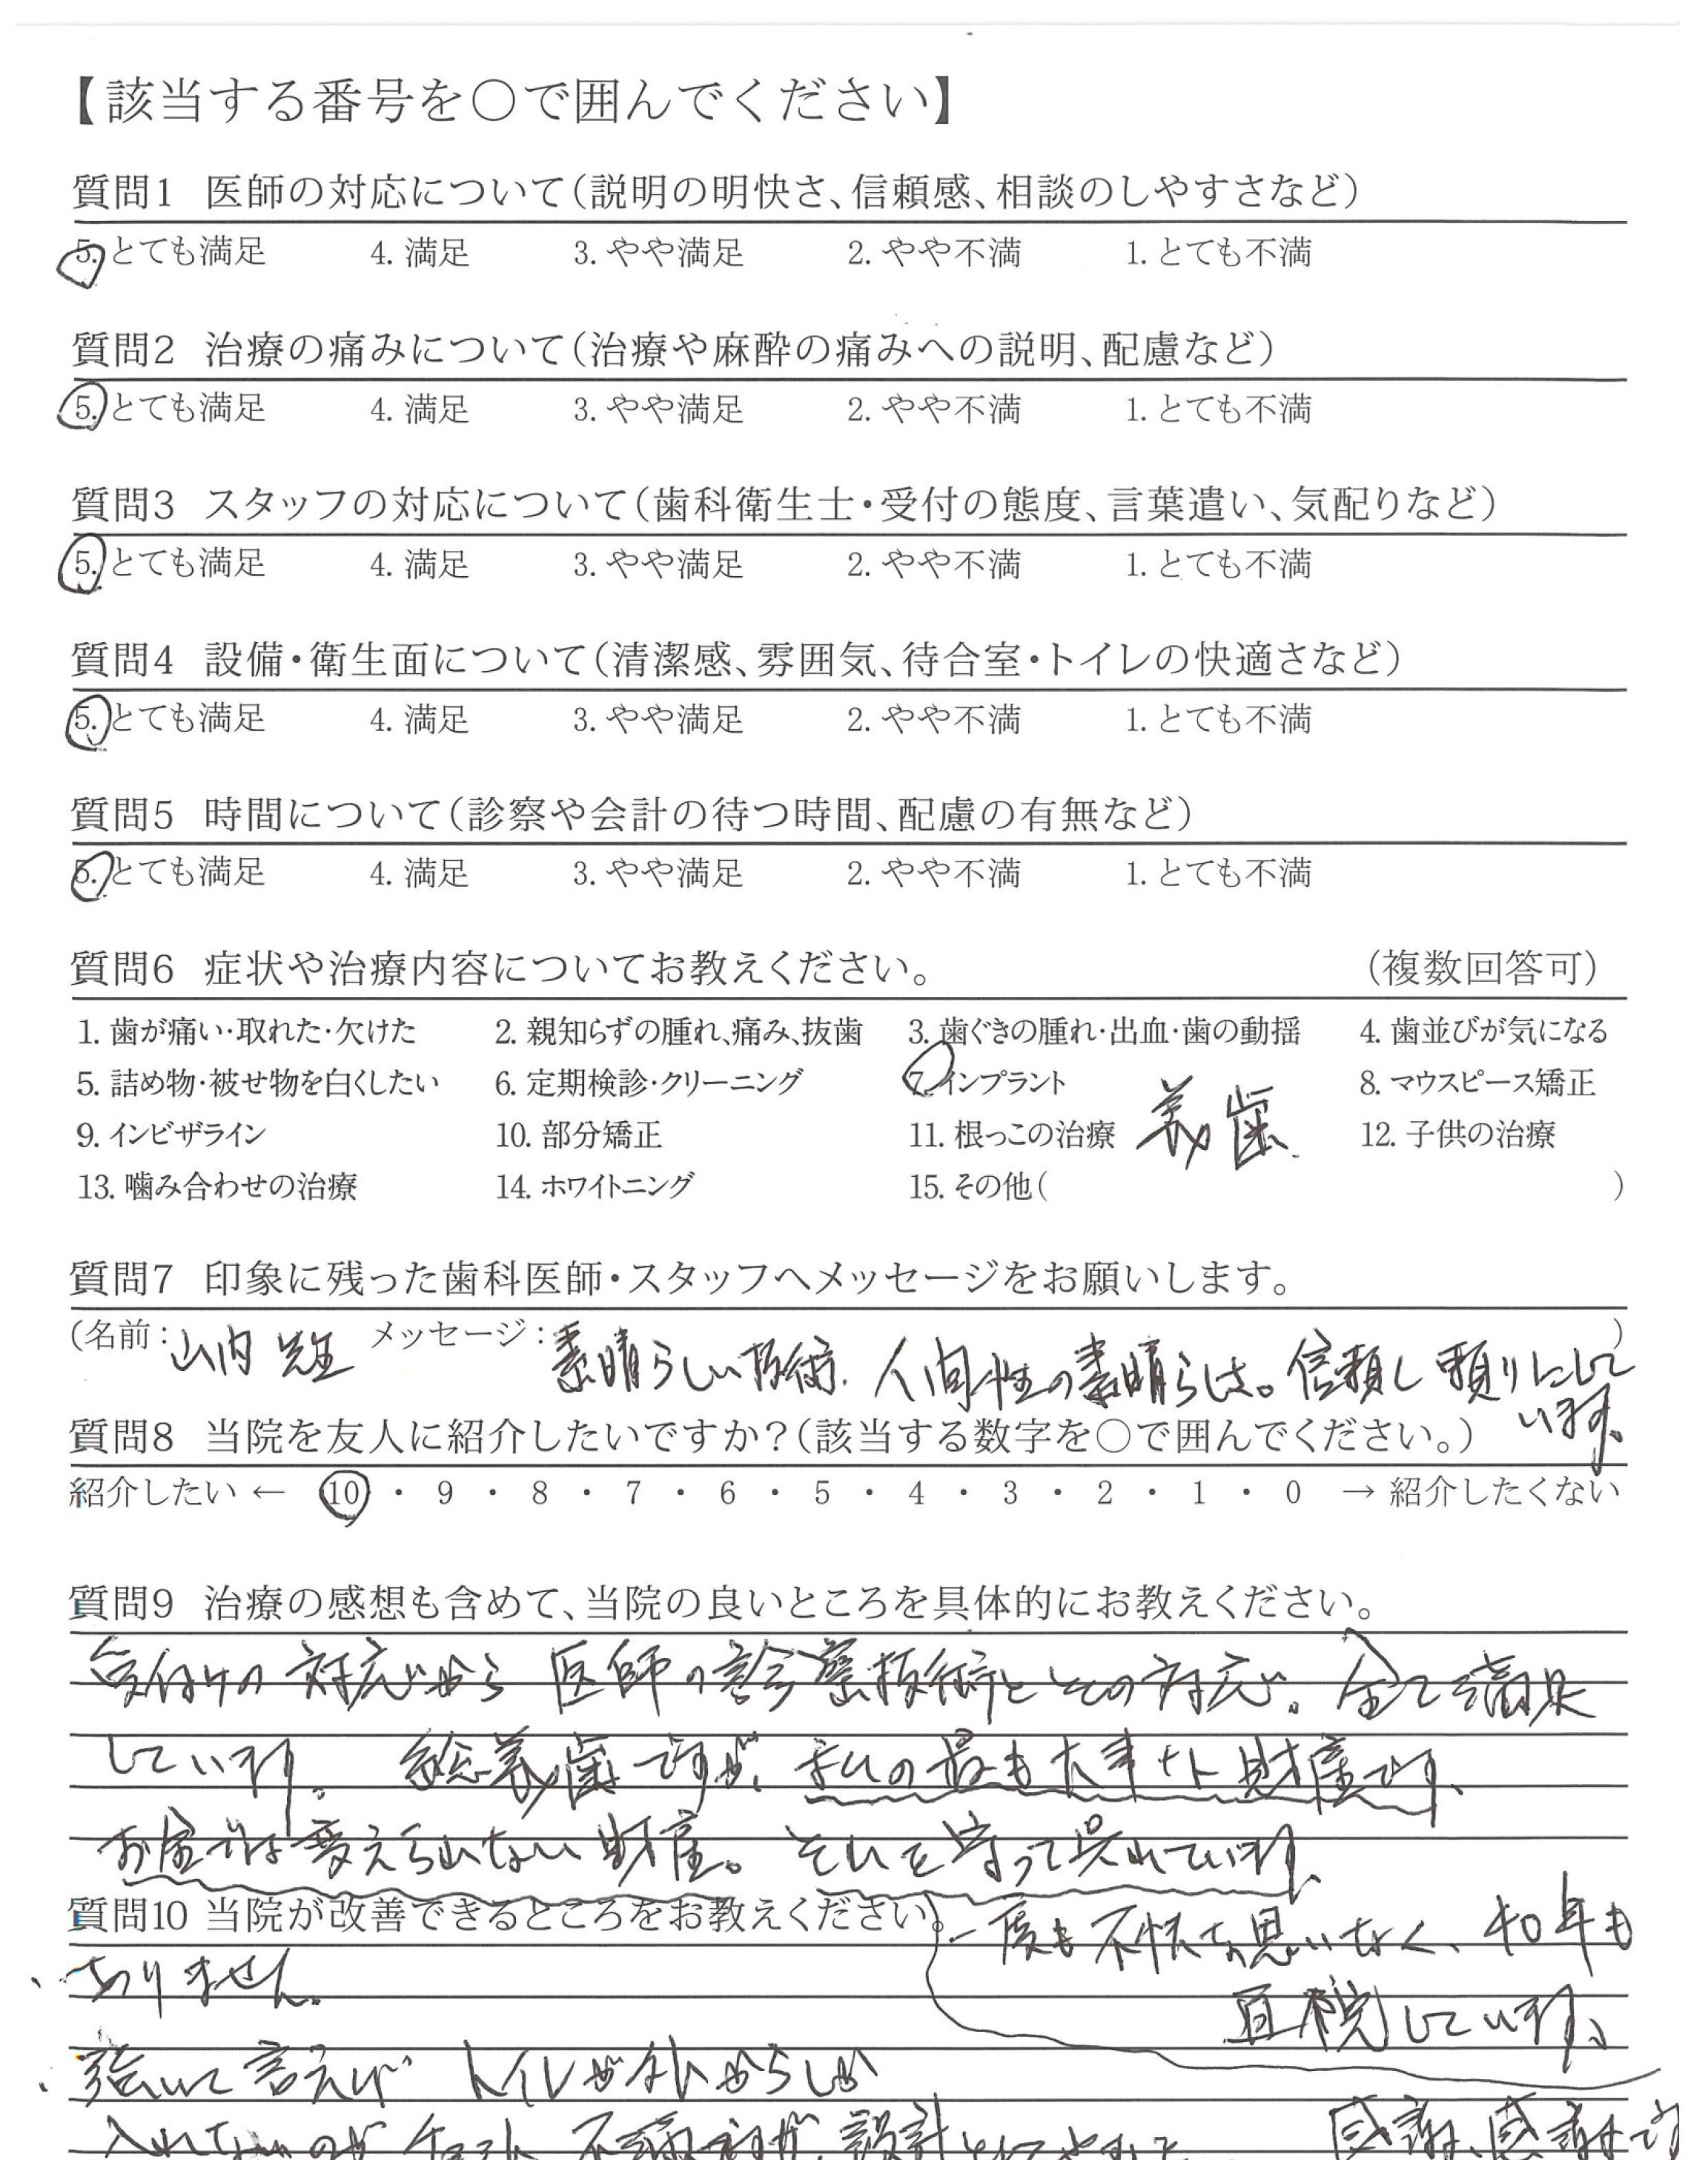 【該当する番号を○で囲んでください】
質問1 医師の対応について(説明の明快さ、信頼感、相談のしやすさなど)
5. とても満足 4. 満足 3. やや満足 2. やや不満 1. とても不満
質問2 治療の痛みについて(治療や麻酔の痛みへの説明、配慮など)
5. とても満足 4. 満足 3. やや満足 2. やや不満 1. とても不満
質問3 スタッフの対応について(歯科衛生士・受付の態度、言葉遣い、気配りなど)
5. とても満足 4. 満足 3. やや満足 2. やや不満 1. とても不満
質問4 設備・衛生面について(清潔感、雰囲気、待合室・トイレの快適さなど)
5. とても満足 4. 満足 3. やや満足 2. やや不満 1. とても不満
質問5 時間について(診察や会計の待つ時間、配慮の有無など)
5. とても満足 4. 満足 3. やや満足 2. やや不満 1. とても不満
質問6 症状や治療内容についてお教えください。 (複数回答可)
1. 歯が痛い・取れた・欠けた 2. 親知らずの腫れ、痛み、抜歯 3. 歯ぐきの腫れ・出血・歯の動揺 4. 歯並びが気になる
5. 詰め物・被せ物を白くしたい 6. 定期検診・クリーニング 7. インプラント 8. マウスピース矯正
9. インビザライン 10. 部分矯正 11. 根っこの治療 義歯 12. 子供の治療
13. 噛み合わせの治療 14. ホワイトニング 15. その他( )
質問7 印象に残った歯科医師・スタッフへメッセージをお願いします。
(名前: 山内先生 メッセージ: 素晴らしい技術、人間性の素晴らしさ。信頼し頼りにして )
います、
質問8 当院を友人に紹介したいですか?(該当する数字を○で囲んでください。)
紹介したい ← 10 ・ 9 ・ 8 ・ 7 ・ 6 ・ 5 ・ 4 ・ 3 ・ 2 ・ 1 ・ 0 → 紹介したくない
質問9 治療の感想も含めて、当院の良いところを具体的にお教えください。
受付けの対応から医師の診療技術とその対応。全て満足
しています。総義歯ですが、私の最も大事な財産です、
お金では変えられない財産。それを守って呉れています、
質問10 当院が改善できるところをお教えください。
一度も不快な思いなく、40年も
ありません。
しています、
強いて言えば トイレが外からしか
入れないのが 設計 感謝、感謝です